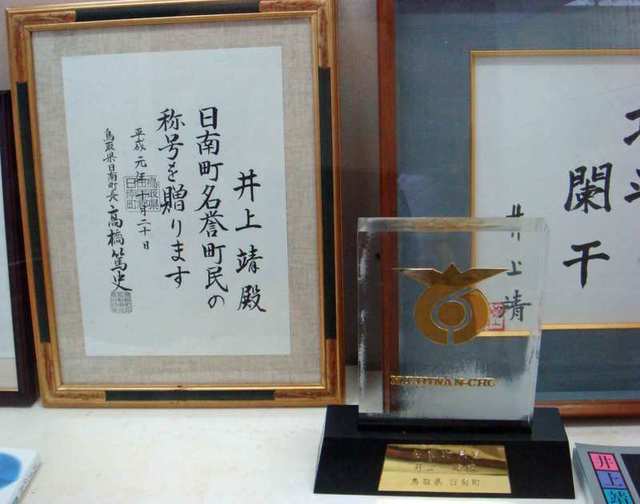 井上靖殿
日南町名誉町民の
称号を贈ります
平成元年十一月二十日
鳥取県日南町長 高橋篤史
闌干
井上靖
NICHINAN-CHO
鳥取県 日南町
井
上
靖